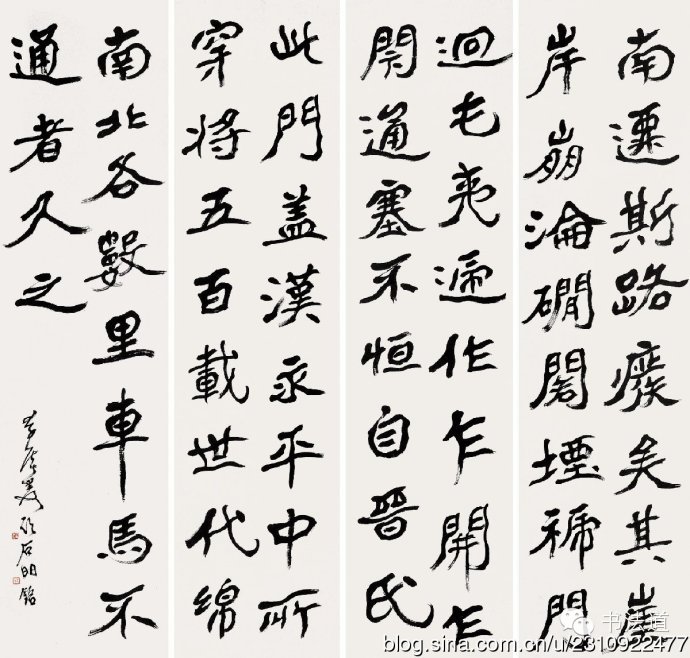 南遷斯路癈矣其崖
岸崩淪磵閣堙褫門
迴屯夷遞作乍開乍
閇通塞不恒自晉氏
此門蓋漢永平中所
穿將五百載世代綿
南北各數里車馬不
通者久之
臨石門銘
书法道
blog.sina.com.cn/u/2310922477